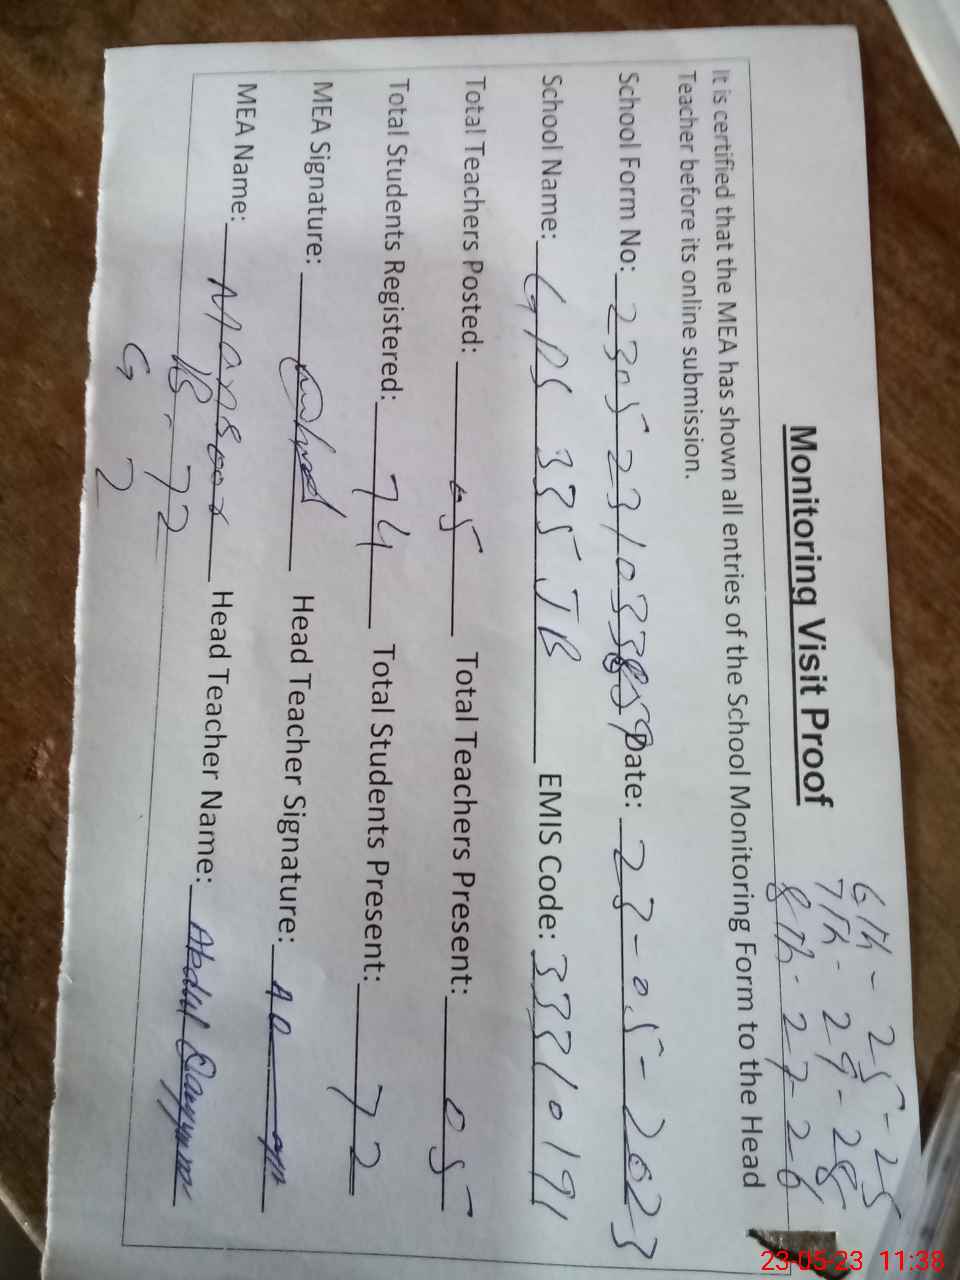 6th - 25 - 25
7th - 29 - 28
8th - 27 - 26
Monitoring Visit Proof
It is certified that the MEA has shown all entries of the School Monitoring Form to the Head
Teacher before its online submission.
School Form No: Date: 23-05-2023
School Name: GPS 335 JB EMIS Code: 33310191
Total Teachers Posted: 05 Total Teachers Present: 05
Total Students Registered: 74 Total Students Present: 72
MEA Signature: Head Teacher Signature:
MEA Name: Head Teacher Name: Abdul Qayyum
72
G 2
23-05-23 11:38